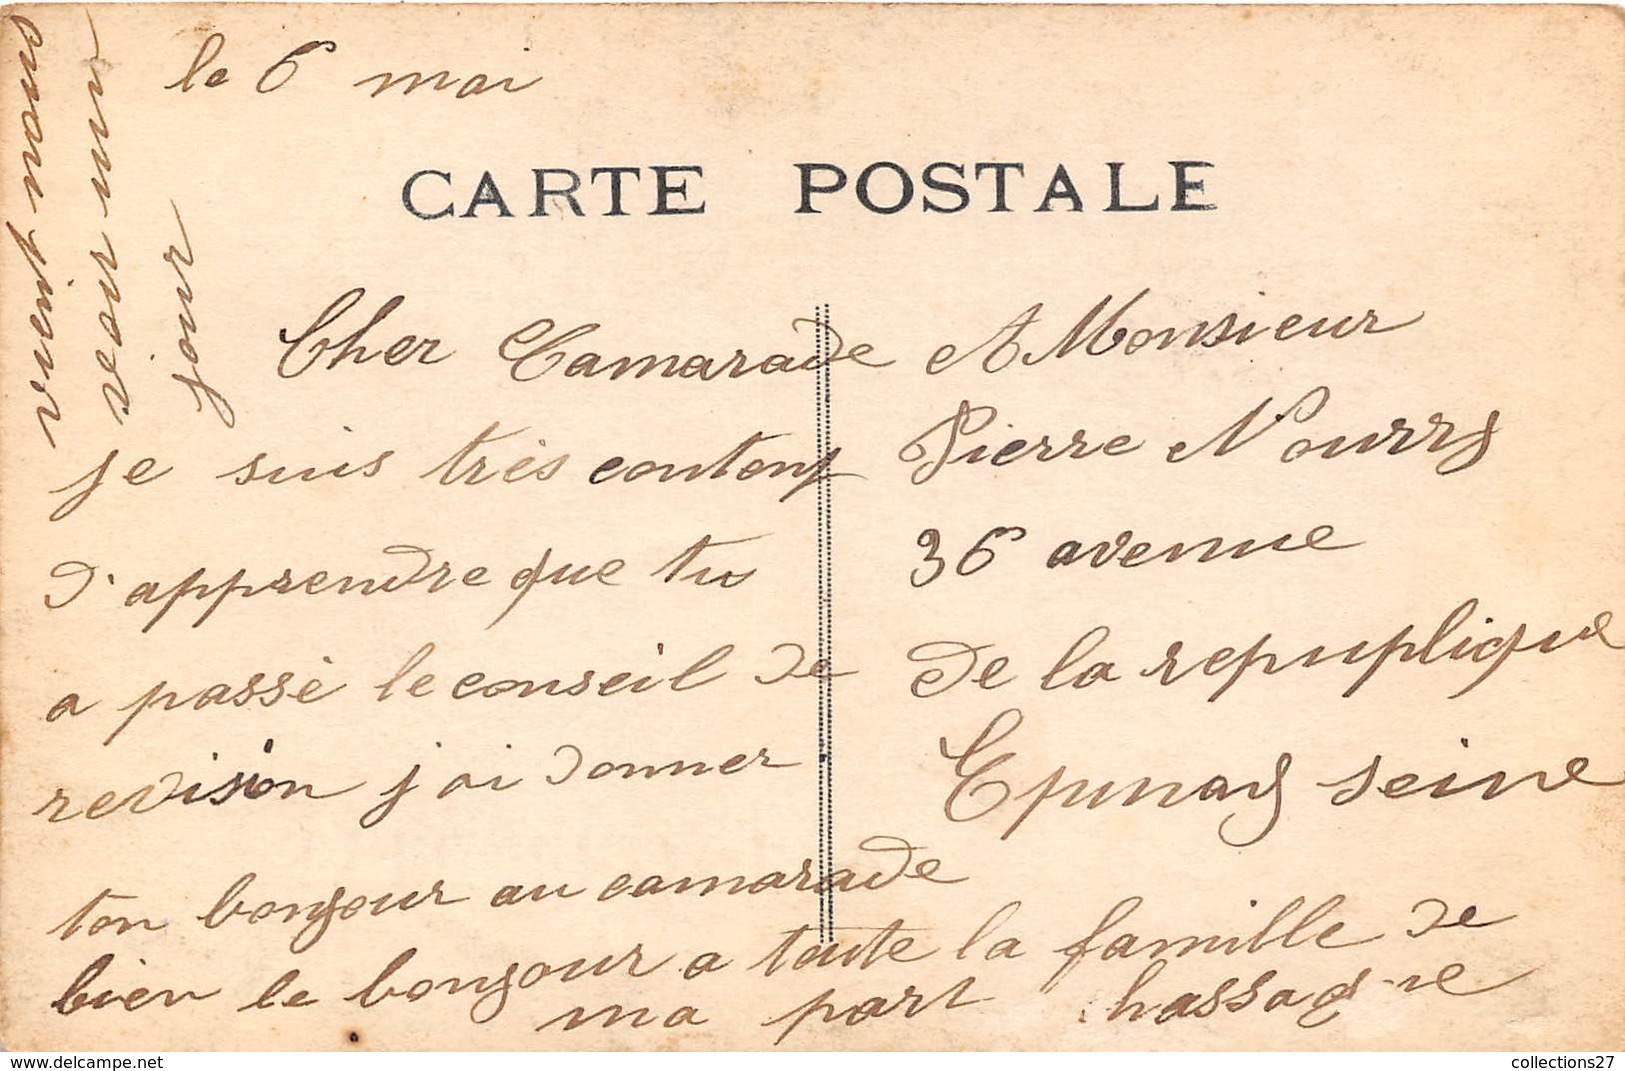 le 6 mai
CARTE POSTALE
Cher Camarade
je suis très contont
d'apprendre que tu
a passé le conseil de
revision j ai donner
ton bonjour au camarade
bien le bonjour a toute la famille de
ma part
vient nous
veoir un
jour
A Monsieur
Pierre Nourry
36 avenue
de la repuplique
Epinay seine
collections27